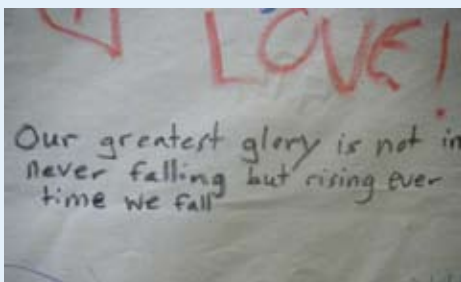 LOVE!
Our greatest glory is not in
never falling but rising ever
time we fall